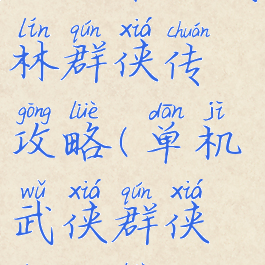 lín qún xiá chuán
林群侠传
gōng lüè dān jī
攻略(单机
wǔ xiá qún xiá
武侠群侠